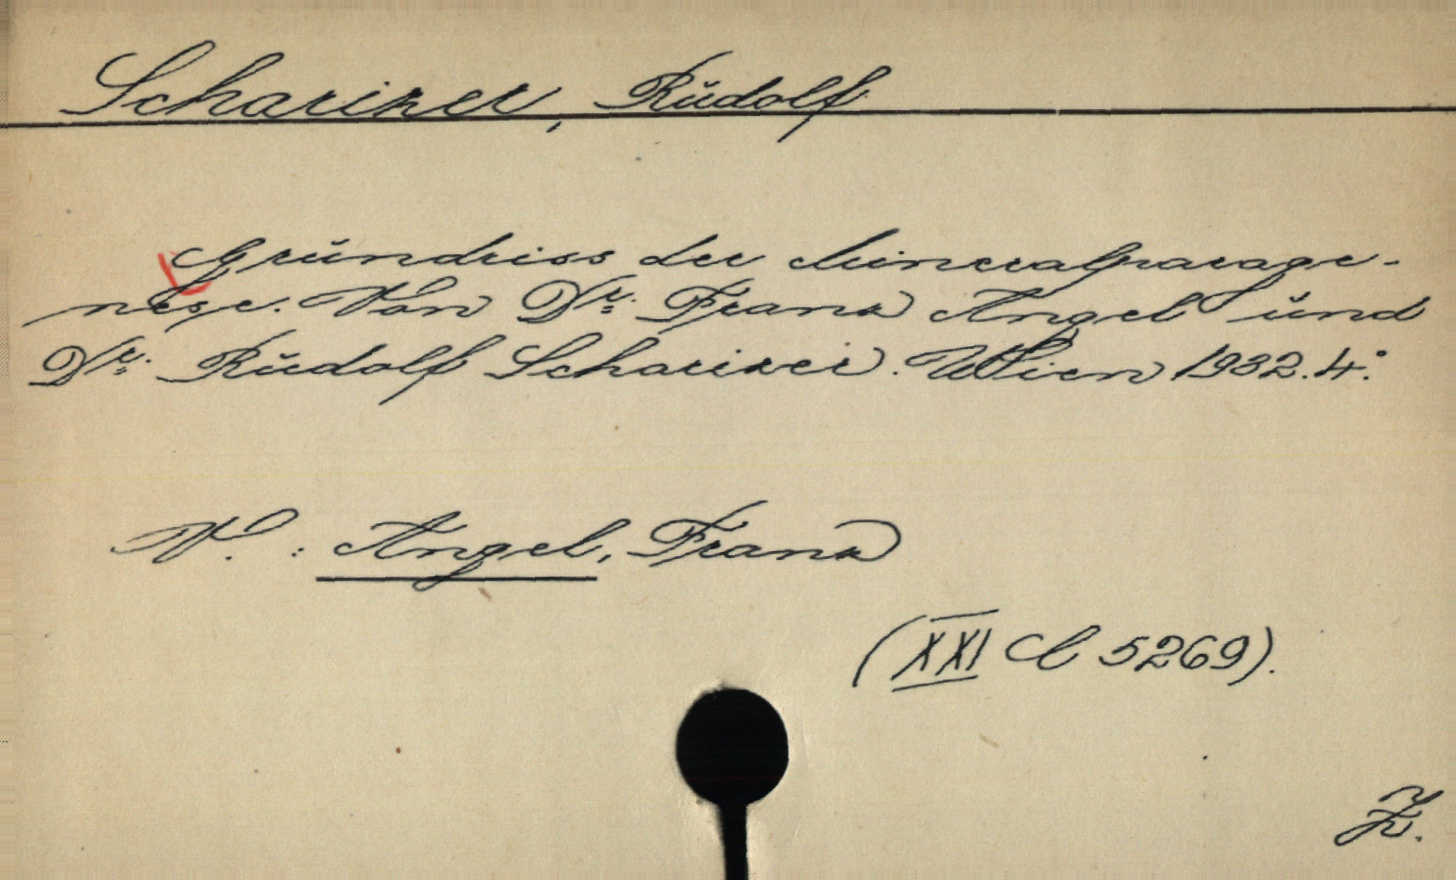 Scharizer, Rudolf
Grundriss der Mineralparage-
nese. Von Dr. Franz Angel und
Dr. Rudolf Scharizer. Wien 1932. 4°.
V. : Angel, Franz
(XXI C 5269).
Z.